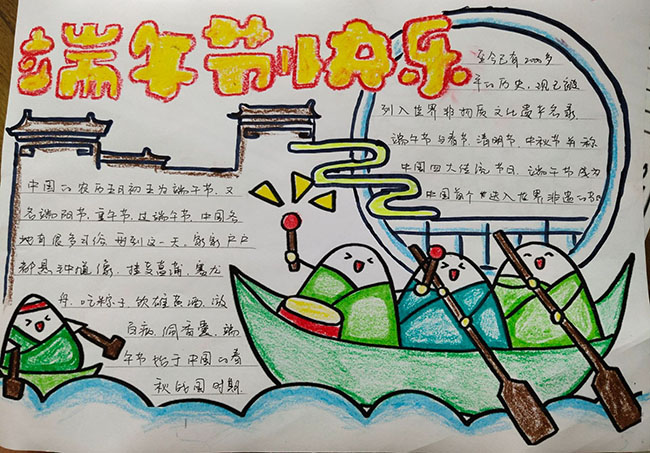 端午节快乐
中国的农历五月初五为端午节,又
名端阳节、重午节,过端午节,中国各
地有很多习俗,每到这一天,家家户户
都悬钟馗像,挂艾菖蒲,赛龙
舟,吃粽子,饮雄黄酒,游
百病,佩香囊,端
午节始于中国的春
秋战国时期.
至今已有2000多
年的历史,现已被
列入世界非物质文化遗产名录.
端午节与春节、清明节、中秋节并称
中国四大传统节日,端午节成为
中国首个进入世界非遗的节日